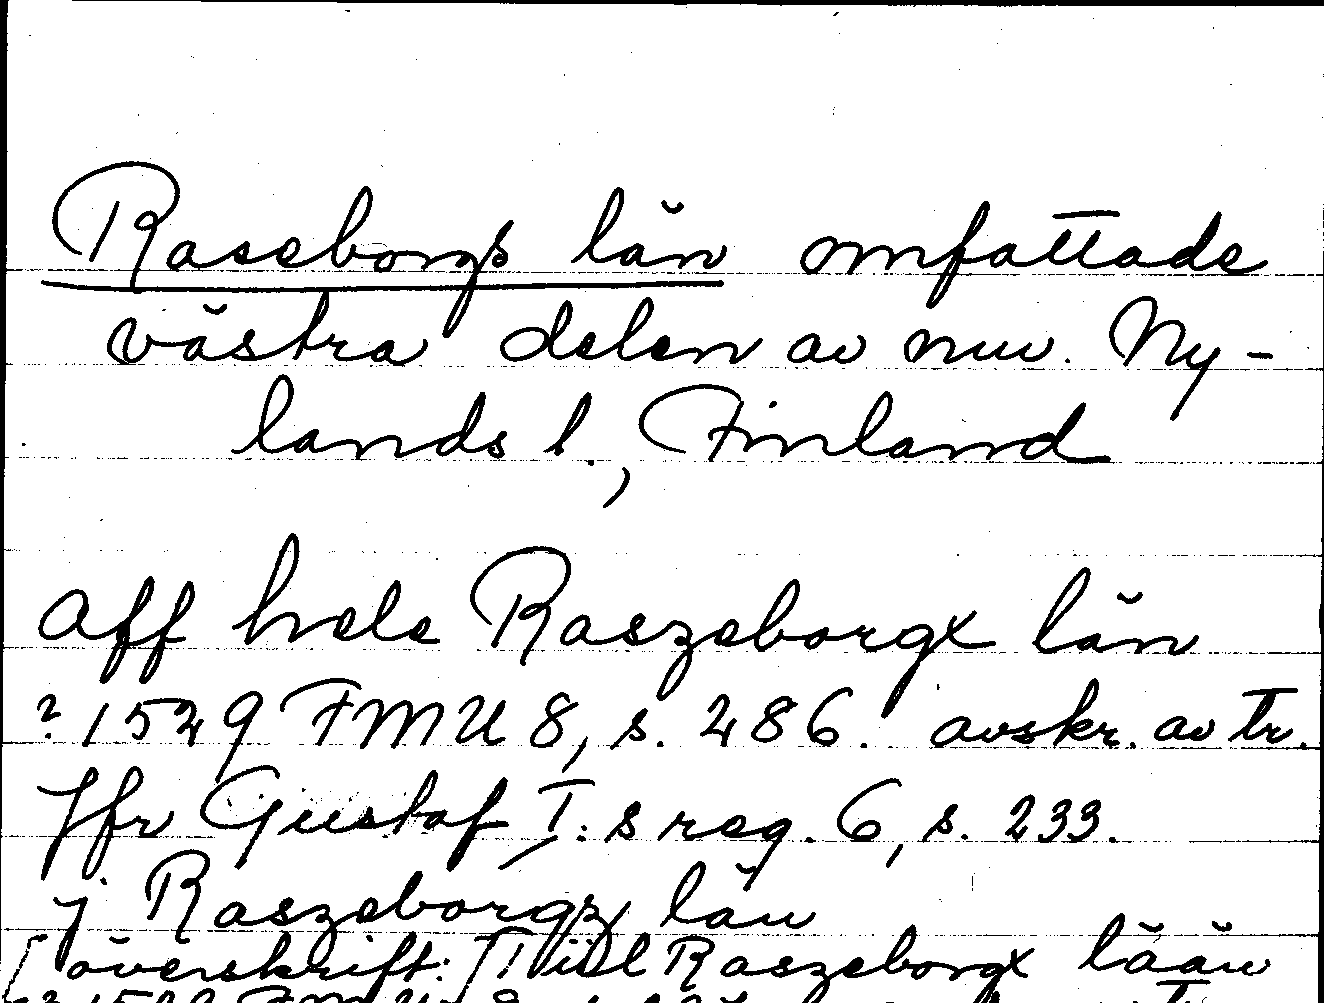 Raseborgs län omfattade
västra delen av nuv. Ny-
lands l., Finland
Aff hele Raszeborgx län
? 1529 FMU 8, s. 286. avskr. av tr.
Jfr Gustaf I:s reg. 6, s. 233.
j Raszeborgx län
[överskrift:] Tiil Raszeborgx lään